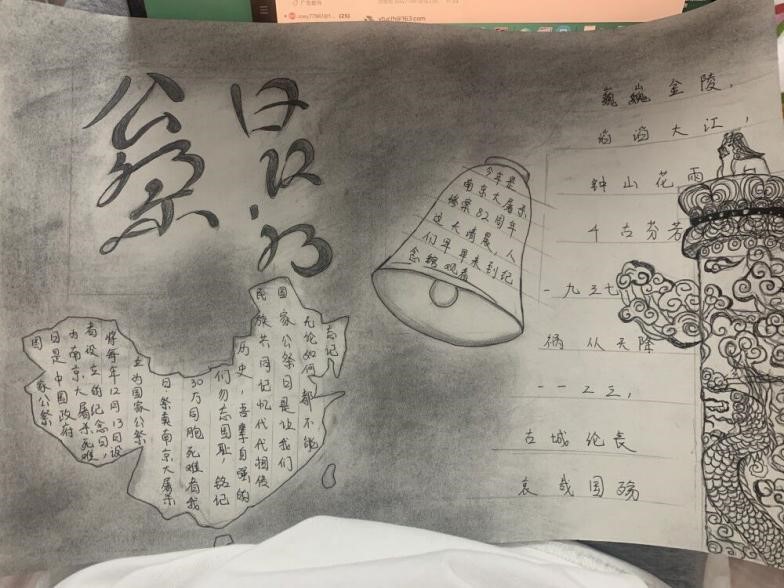 (25)
@163.com
公祭
日
今年是
南京大屠杀
惨案82周年
这天清晨,人
们早早来到纪
念馆观看
巍巍金陵,
滔滔大江,
钟山花雨
千古芬芳
一九三七
祸从天降
一一二三,
古城伦丧
哀我国殇
国家公祭
日是中国政府
为南京大屠杀死难
者设立的纪念日,
将每年12月13日设
立为国家公祭
日祭奠南京大屠杀
30万同胞死难者我
们勿忘国耻,铭记
历史,自强的
民族共同记忆代代相传
国家公祭日是让我们
无论如何都不能
忘记